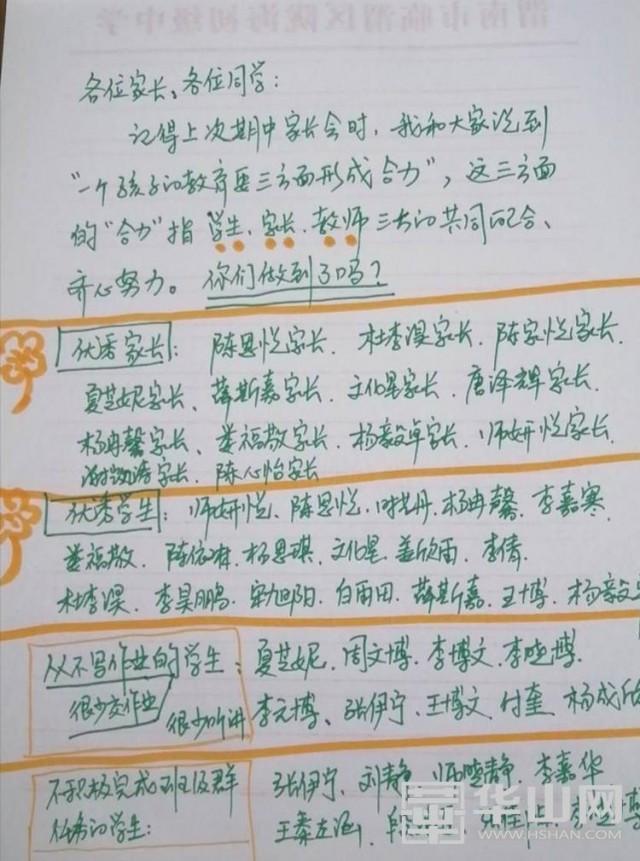 渭南市临渭区陇海初级中学
各位家长、各位同学:
记得上次期中家长会时,我和大家说到
"一个孩子的教育要三方面形成合力",这三方面
的"合力"指学生、家长、教师三方的共同配合、
齐心努力。你们做到了吗?
优秀家长: 陈思悦家长、杜李淏家长、陈家悦家长、
夏芝妮家长、薛斯嘉家长、文化星家长、唐泽辉家长、
杨冉馨家长、娄福敬家长、杨毅卓家长、师妍悦家长、
家长、陈心怡家长
优秀学生: 师妍悦、陈思悦、杨冉馨、李嘉寒、
娄福敬、陈依琳、杨思琪、文化星、姜欣雨、李倩、
杜李淏、李昊鹏、宋旭阳、白雨田、薛斯嘉、王博、杨毅
从不写作业的学生: 夏芝妮、周文博、李博文、李晓博、
很少交作业 很少听讲 李元博、张伊宁、王博文、付奎、杨成
不积极完成班级群 张伊宁、刘静、师晓静、李嘉华
任务的学生: 王秦
华山网
WWW.HSHAN.COM